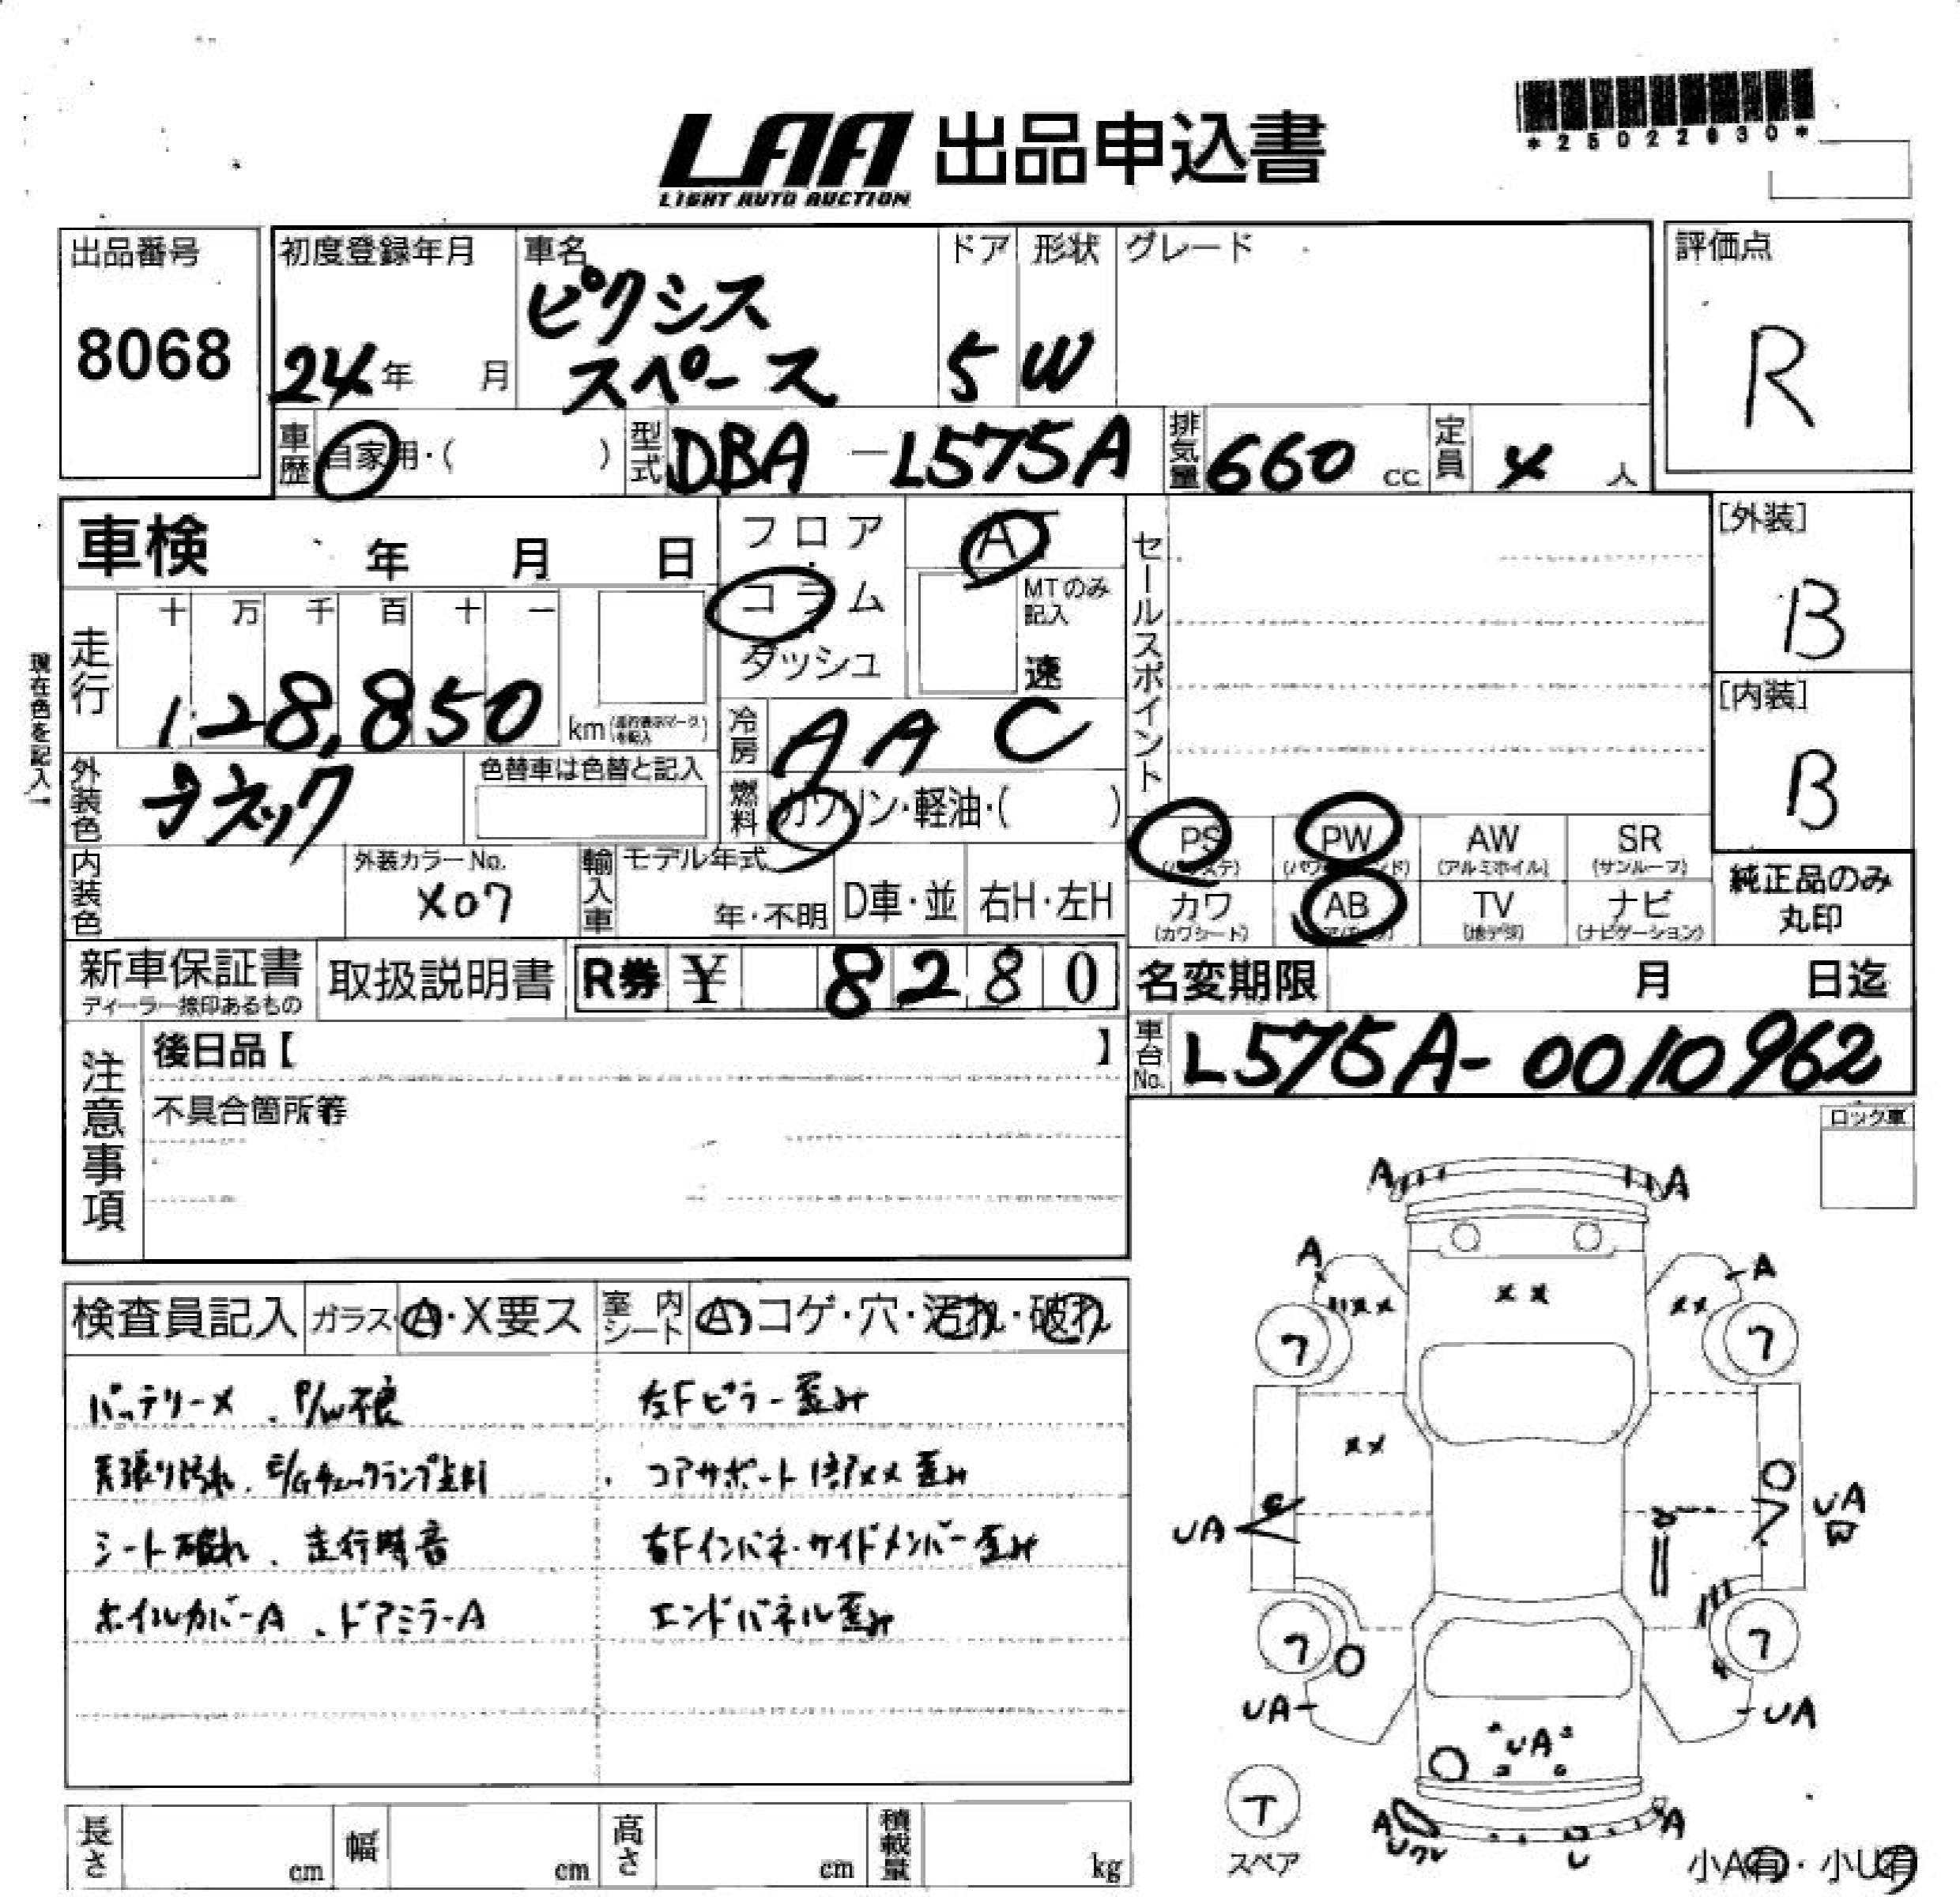 LAA 出品申込書
LIGHT AUTO AUCTION
*25022630*
出品番号
8068
初度登録年月
24年 月
車名
ピクシス
スペース
ドア
5
形状
W
グレード
評価点
R
車歴 自家用・( )
型式 DBA-L575A
排気量 660 cc
定員 4 人
車検 年 月 日
フロア
コラム
ダッシュ
AT
MTのみ
記入
速
セールスポイント
[外装]
B
[内装]
B
現在色を記入→
走行 十 万 千 百 十 一
128,850 km
冷房 AAC
外装色 ブラック
色替車は色替と記入
燃料 ガソリン・軽油・( )
PS
(パワステ)
PW
(パワーウインド)
AW
(アルミホイル)
SR
(サンルーフ)
純正品のみ
丸印
内装色
外装カラーNo.
X07
輸入車 モデル年式
年・不明
D車・並
右H・左H
カワ
(カワシート)
AB
(エアバック)
TV
(地デジ)
ナビ
(ナビゲーション)
新車保証書
ディーラー捺印あるもの
取扱説明書
R券 ¥ 8280
名変期限 月 日迄
車台No. L575A-0010962
注意事項
後日品【 】
不具合箇所等
ロック車
検査員記入
ガラス A・X要ス
室内シート A コゲ・穴・汚れ・破れ
バッテリーメ、P/W不良
天張り汚れ、E/Gチェックランプ点灯
シート破れ、走行時音
ホイルカバーA、ドアミラーA
左Fピラー歪み
コアサポート修ХХ歪み
右Fインパネ・サイドメンバー歪み
エンドパネル歪み
A A
A A
XX XX XX
7 7
XX
UA UA
7 7
UA UA
UA
T
スペア
A A
U
小A有・小U有
長さ cm
幅 cm
高さ cm
積載量 kg